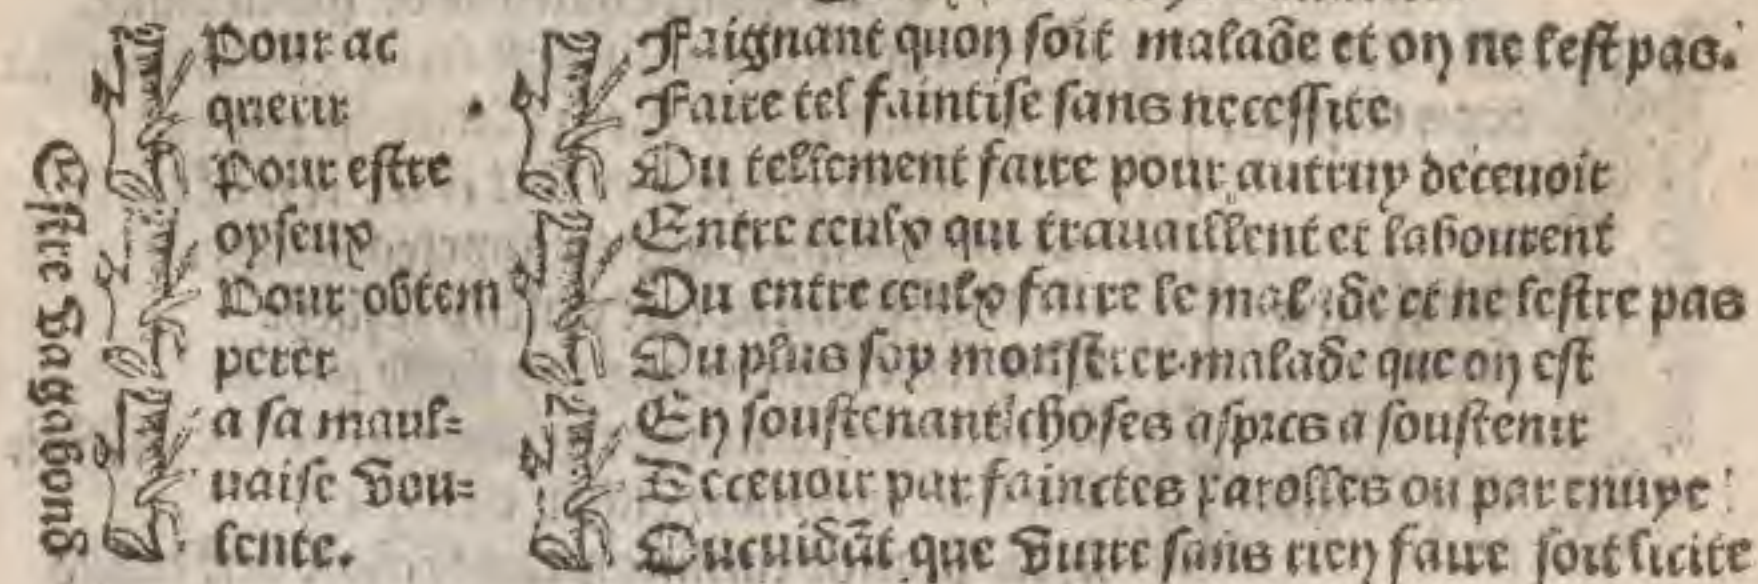 Estre vagabond
Pour ac
querir
Pour estre
oyseux
Pour obtem
perer
a sa maul=
uaise vou=
lente.
Faignant quon soit malade et on ne lest pas.
Faire tel faintise sans necessite
Ou tellement faire pour autruy deceuoir
Entre ceulx qui trauaillent et labourent
Ou entre ceulx faire le malade et ne lestre pas
Ou plus soy monstrer malade que on est
En soustenant choses aspres a soustenir
Deceuoir par fainctes parolles ou par enuye
Oucuidãt que viure sans rien faire soit licite